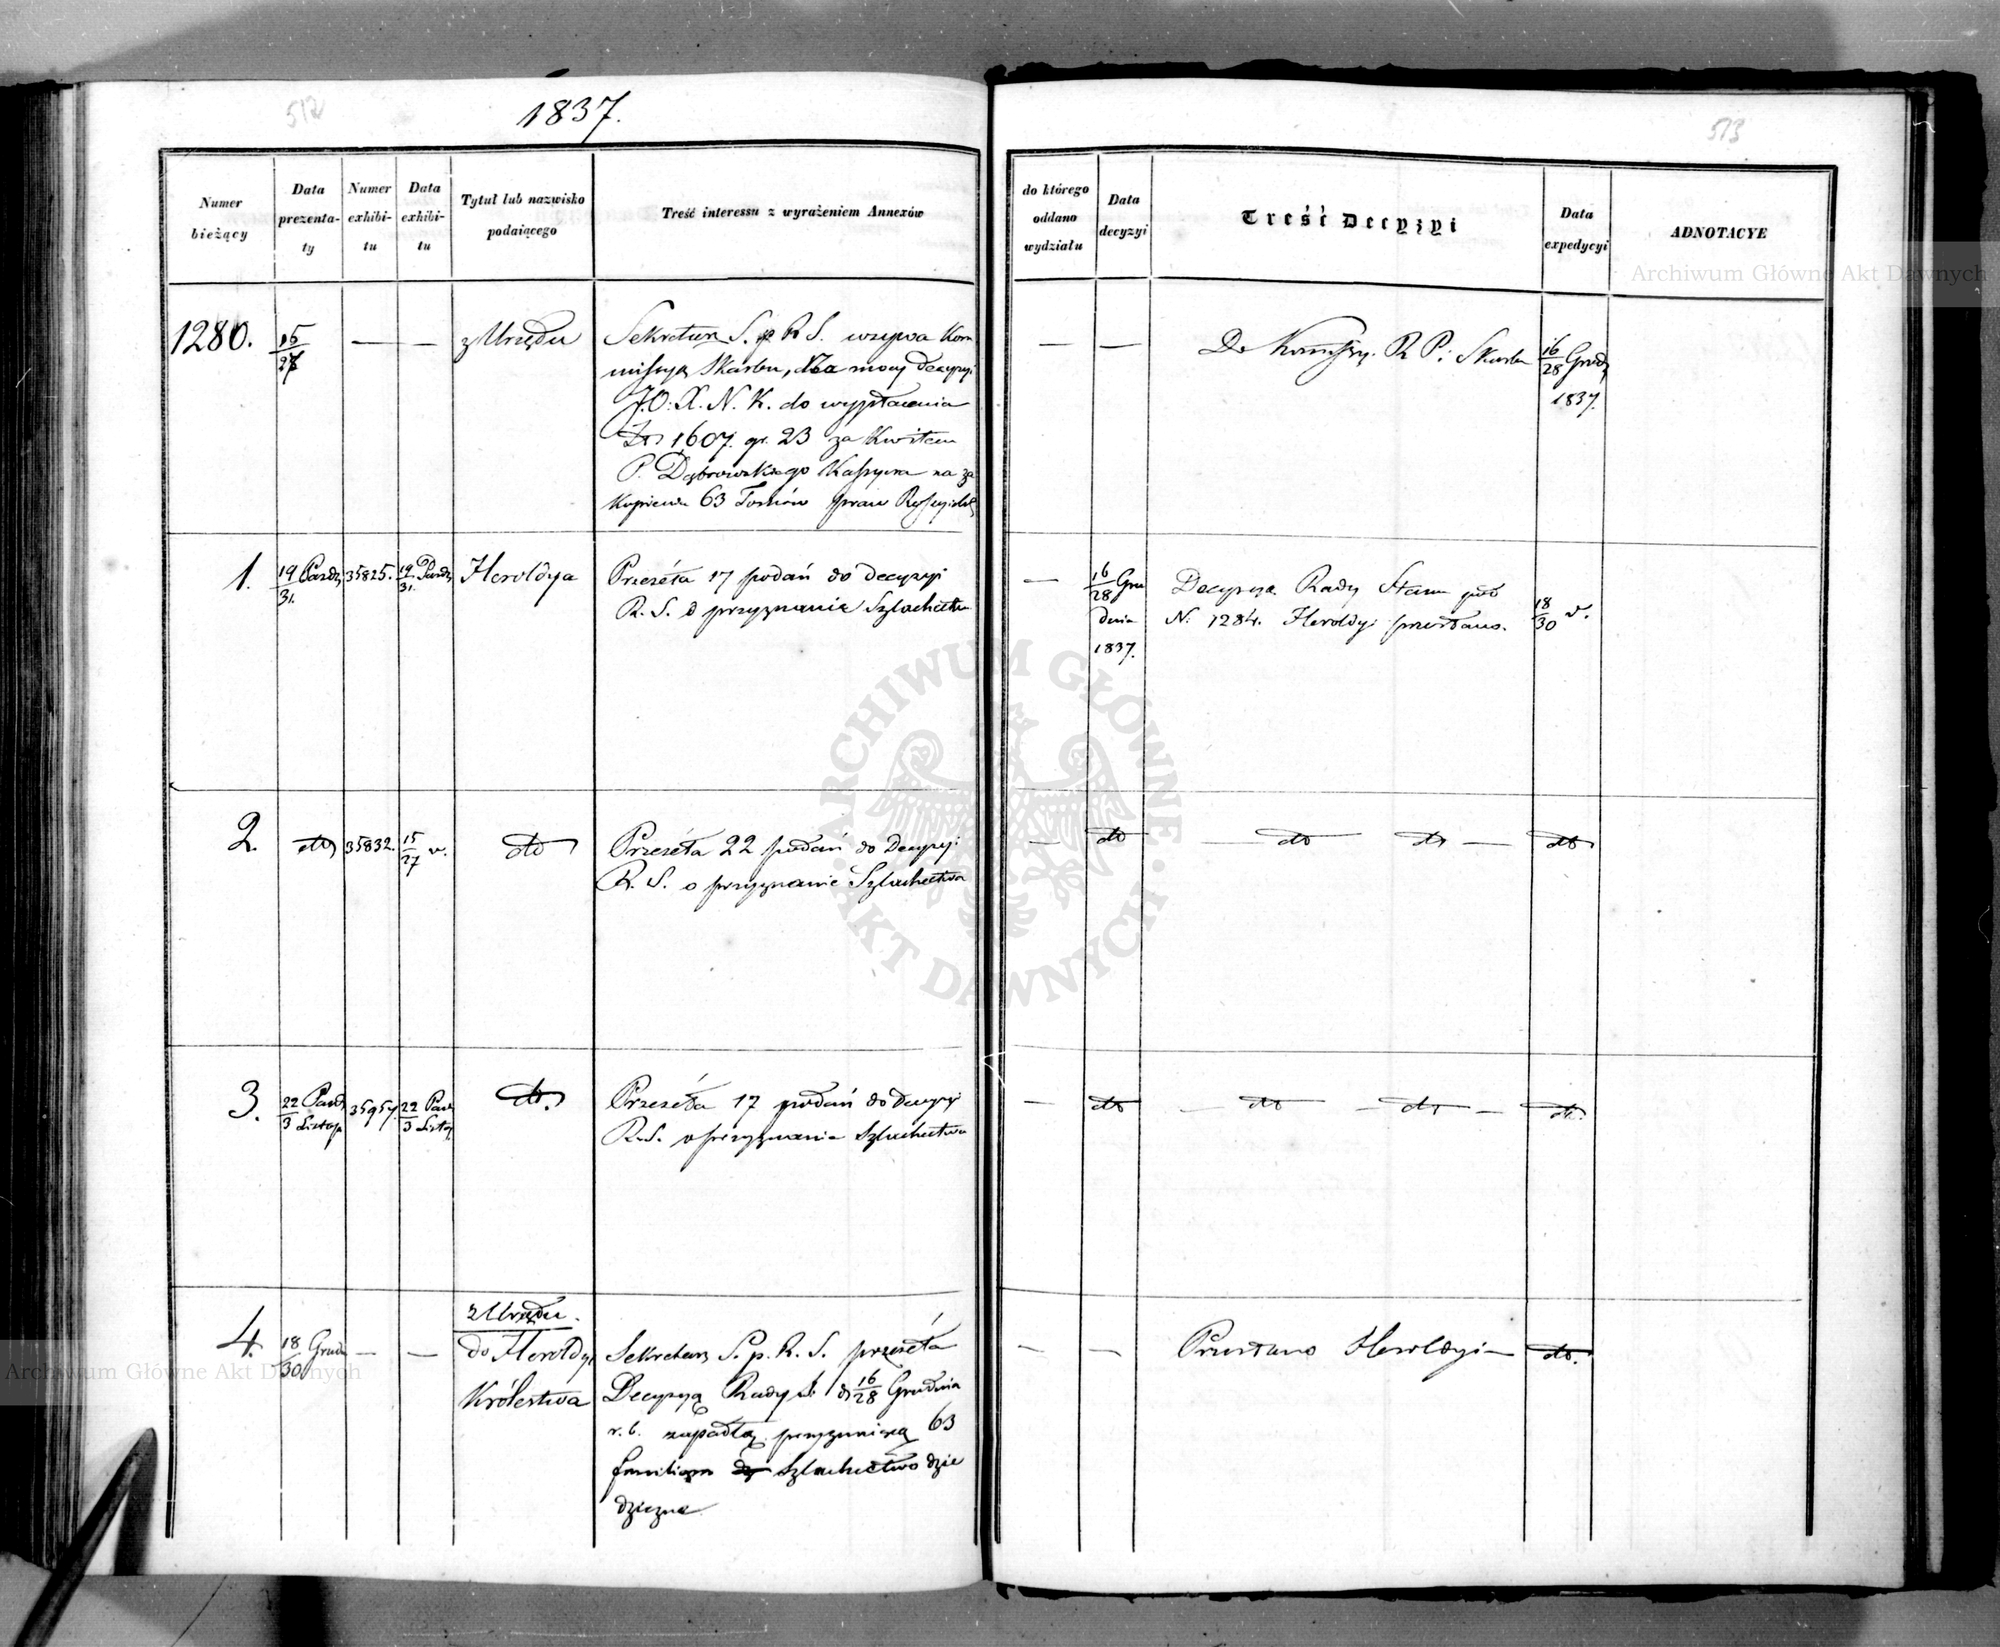 512
1837.
513
Numer bieżący
Data prezenta- ty
Numer exhibi- tu
Data exhibi- tu
Tytuł lub nazwisko podaiącego
Treść interessu z wyrażeniem Annexów
do którego oddano wydziału
Data decyzyi
Treść Decyzyi
Data expedycyi
ADNOTACYE
1280.
15/27
—
—
z Urzędu
Sekretarz S. p R S. wzywa Kom
missyą Skarbu, na mocy decyzyi
J.O. X. N. K. do wypłacenia
1607. gr. 23 za Kwitem
P. Dąbrowskiego Kassyera na za
kupienie 63 praw
—
—
Do Kommissyi R P. i Skarbu
16/28 Grud
1837.
1.
19/31. Paźdz
35825.
19/31. Paźdz
Heroldya
Przeséła 17 podań do decyzyi
R. S. o przyznanie Szlachectwa
—
16/28 Gru
dnia
1837.
Decyzya Rady Stanu
N. 1284. Heroldyi przesłano.
18/30 v.
2.
dto
35832.
15/27 v.
dto
Przeséła 22 podań do Decyzyi
R. S. o przyznanie Szlachectwa
—
dto
— dto dto —
dto
3.
22/3 Paźd Listop
35954.
22/3 Paź Listop
dto.
Przeséła 17 podań do decyzyi
R. S. o przyznanie Szlachectwa
—
dto
— dto — dto —
dto.
4.
18/30 Grud
—
—
z Urzędu.
do Heroldyi
Królestwa
Sekretarz S. p. R. S. przeséła
Decyzyą Rady d 16/28 Grudnia
r. b. zapadłą przyznaiącą 63
familiom Szlachectwo dzie
dziczne
—
—
Przesłano Heroldyi —
dto.
Archiwum Główne Akt Dawnych
Archiwum Główne Akt Dawnych
ARCHIWUM GŁÓWNE · AKT DAWNYCH ·